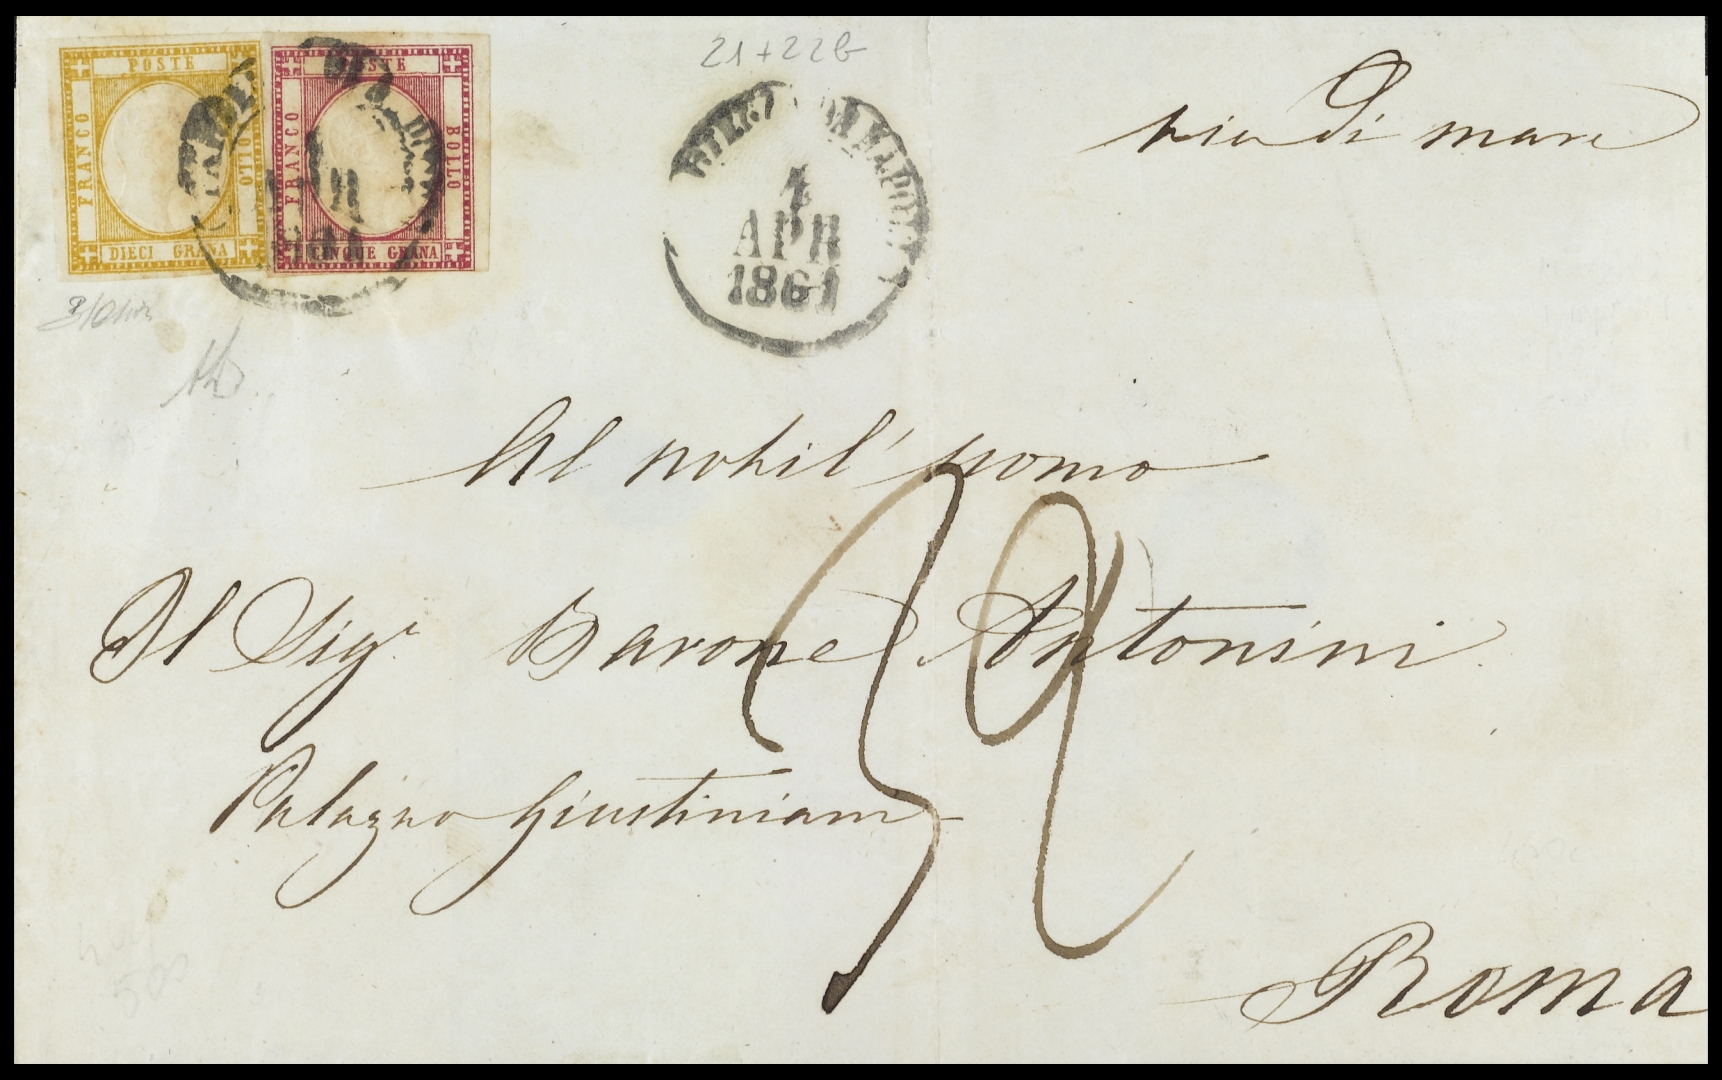 POSTE
FRANCO
BOLLO
DIECI GRANA
POSTE
FRANCO
BOLLO
CINQUE GRANA
APR
21+22b
NAPOLI
1
APR
1861
via di mare
Al nobil' uomo
Il Sigr Barone Antonini
Palazzo Giustiniani
32
Roma
500